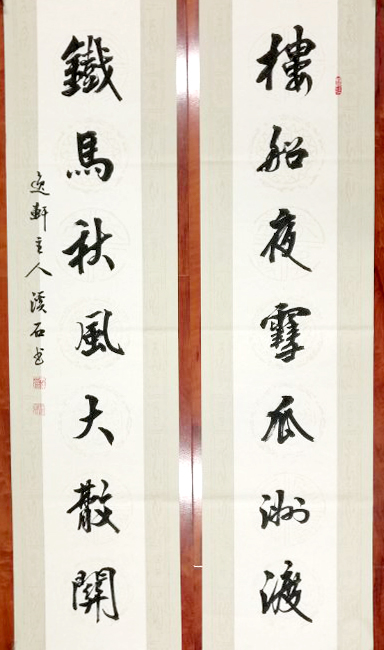 樓船夜雪瓜洲渡
鐵馬秋風大散關
逸軒主人溪石书